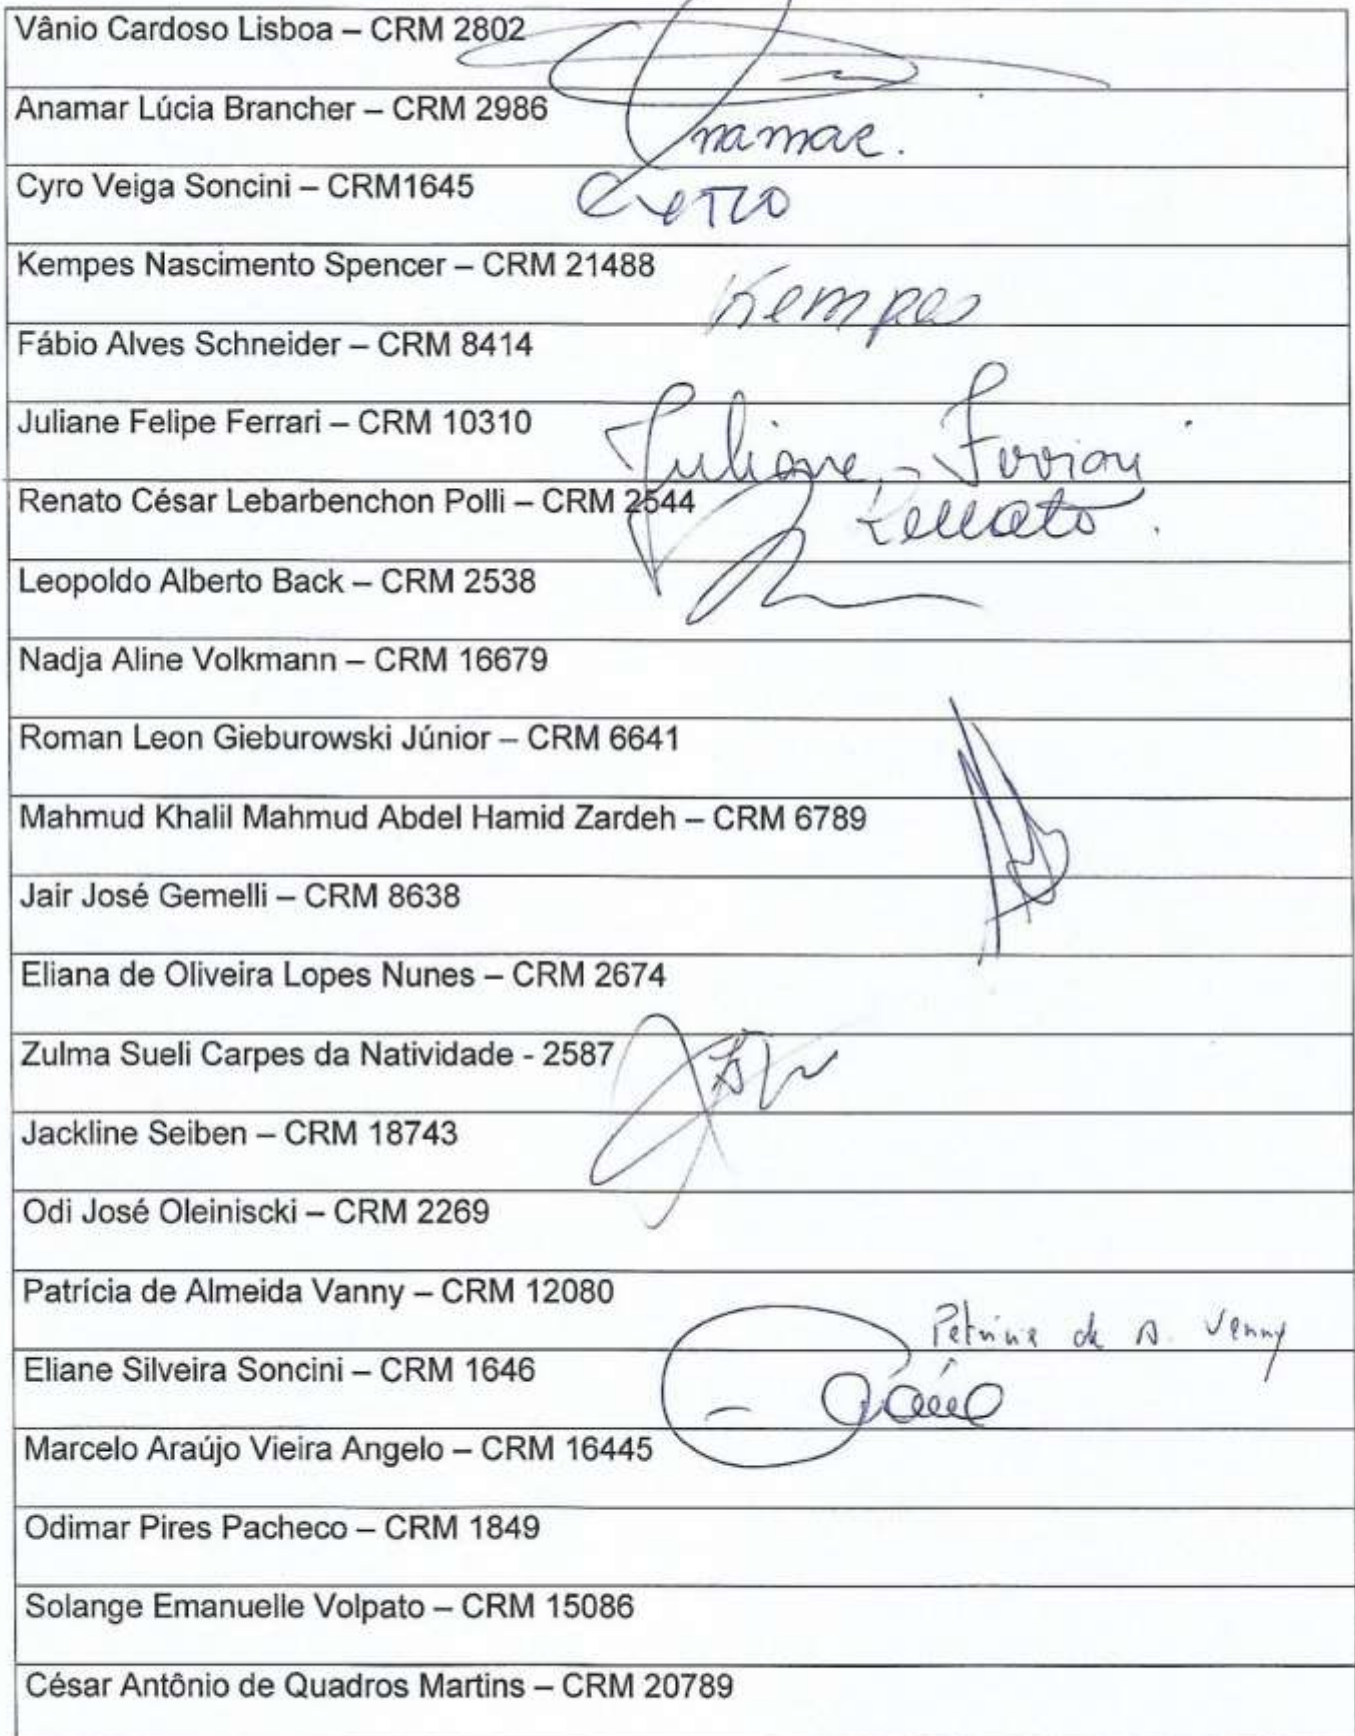 Vânio Cardoso Lisboa – CRM 2802
Anamar Lúcia Brancher – CRM 2986
Anamar.
Cyro Veiga Soncini – CRM1645
Kempes Nascimento Spencer – CRM 21488
Kempes
Fábio Alves Schneider – CRM 8414
Juliane Felipe Ferrari – CRM 10310
Juliane Ferrari
Renato César Lebarbenchon Polli – CRM 2544
Renato.
Leopoldo Alberto Back – CRM 2538
Nadja Aline Volkmann – CRM 16679
Roman Leon Gieburowski Júnior – CRM 6641
Mahmud Khalil Mahmud Abdel Hamid Zardeh – CRM 6789
Jair José Gemelli – CRM 8638
Eliana de Oliveira Lopes Nunes – CRM 2674
Zulma Sueli Carpes da Natividade - 2587
Jackline Seiben – CRM 18743
Odi José Oleiniscki – CRM 2269
Patrícia de Almeida Vanny – CRM 12080
Patrícia de A. Vanny
Eliane Silveira Soncini – CRM 1646
Marcelo Araújo Vieira Angelo – CRM 16445
Odimar Pires Pacheco – CRM 1849
Solange Emanuelle Volpato – CRM 15086
César Antônio de Quadros Martins – CRM 20789